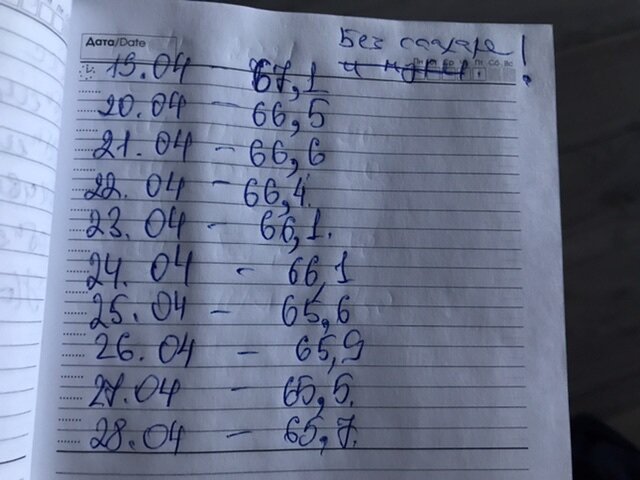 Без сахара !
Дата/Date
19.04 - 67,1
20.04 - 66,5
21.04 - 66,6
22.04 - 66,4.
23.04 - 66,1.
24.04 - 66,1
25.04 - 65,6
26.04 - 65,9
27.04 - 65,5.
28.04 - 65,7.